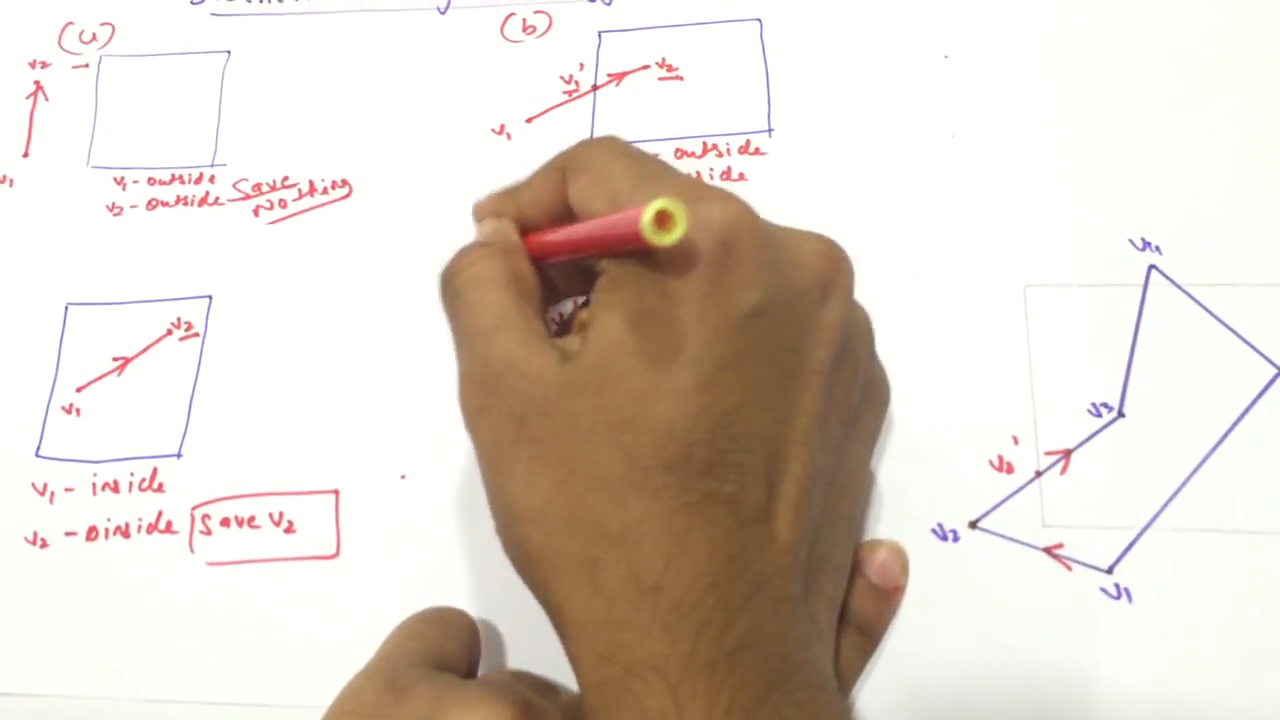 (a)
v2
v1
v1 - outside
v2 - outside
Save
Nothing
(b)
v1'
v2
v1
outside
v2
v1
v1 - inside
v2 - inside
Save v2
v4
v3
v2'
v2
v1